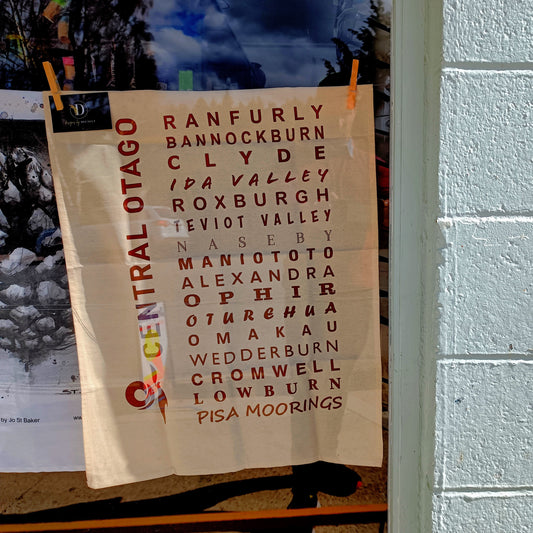 CENTRAL OTAGO
RANFURLY
BANNOCKBURN
CLYDE
IDA VALLEY
ROXBURGH
TEVIOT VALLEY
NASEBY
MANIOTOTO
ALEXANDRA
OPHIR
OTUREHUA
OMAKAU
WEDDERBURN
CROMWELL
LOWBURN
PISA MOORINGS
by Jo St Baker